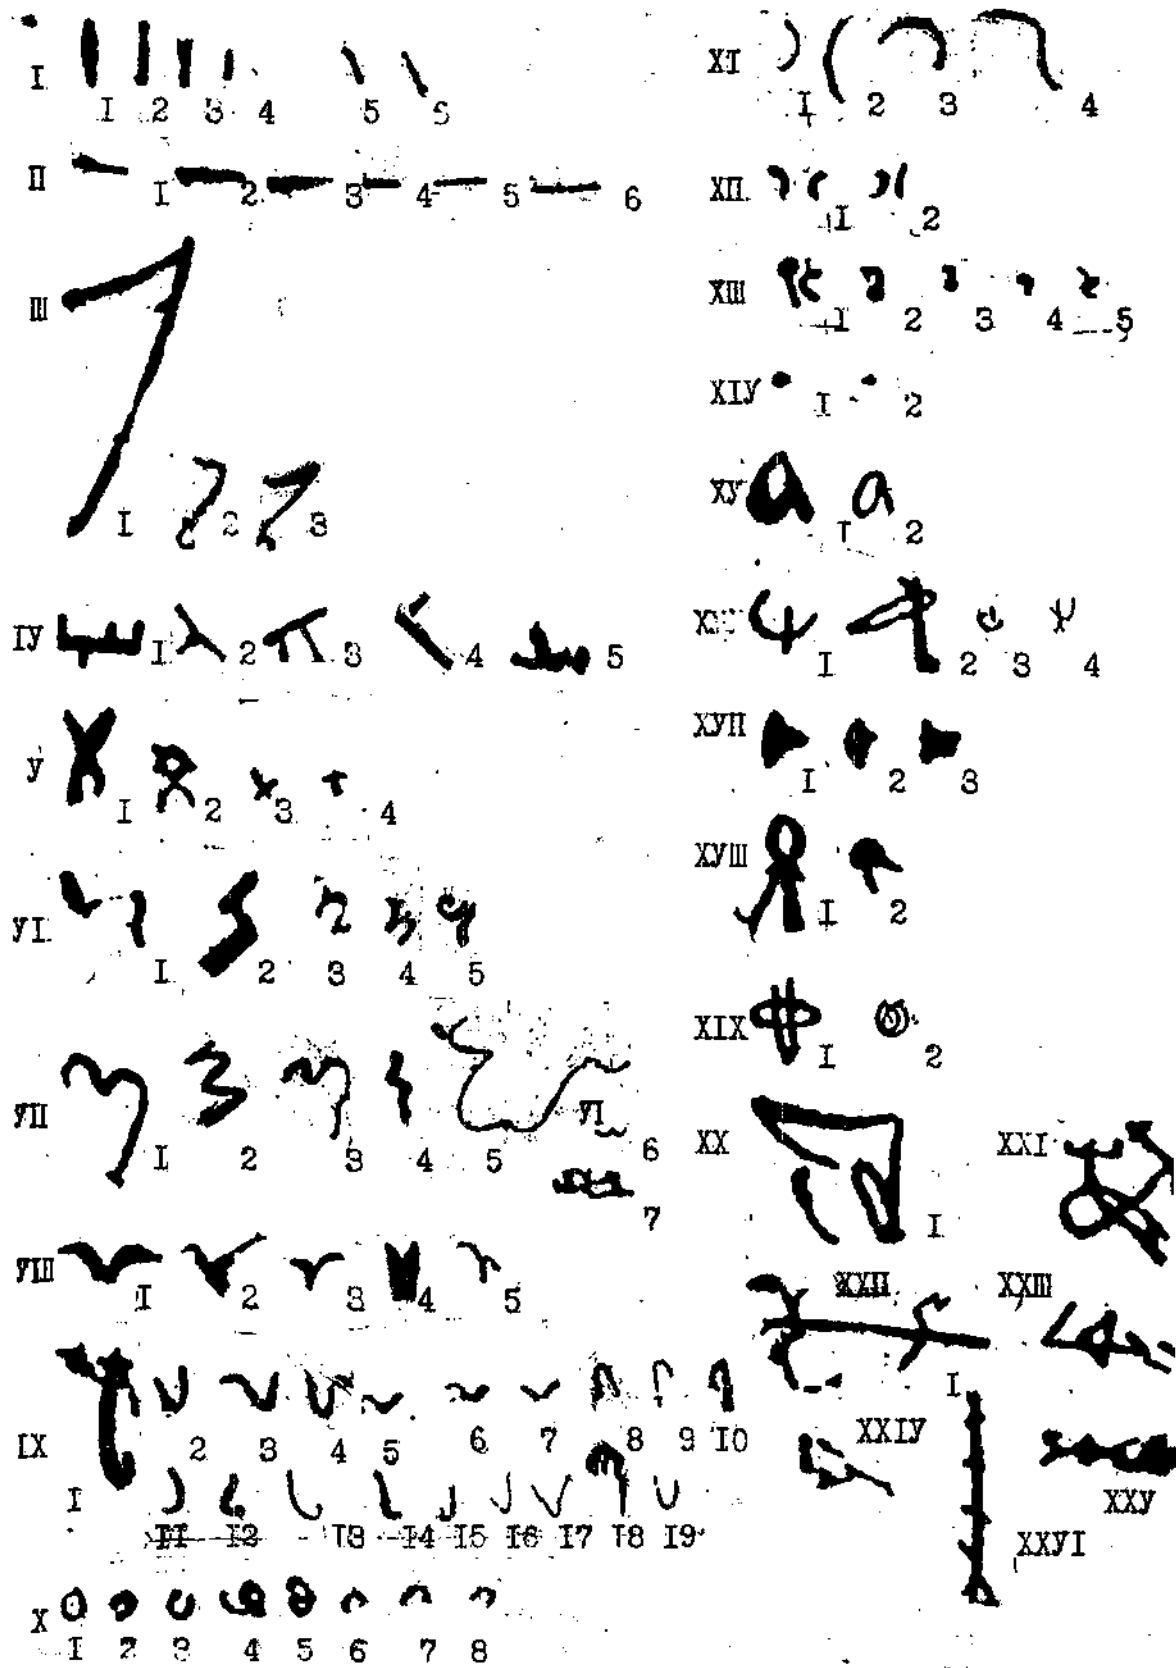 I
I 2 3 4 5 6
II
I 2 3 4 5 6
III
I 2 3
IУ
I 2 3 4 5
У
I 2 3 4
УI
I 2 3 4 5
УII
I 2 3 4 5 6
7
УIII
I 2 3 4 5
IX
I 2 3 4 5 6 7 8 9 I0
II I2 I3 I4 I5 I6 I7 I8 I9
X
I 2 3 4 5 6 7 8
XI
I 2 3 4
XII
I 2
XIII
I 2 3 4 5
XIУ
I 2
XУ
I 2
I 2 3 4
XУII
I 2 3
XУIII
I 2
XIX
I 2
XX
I
XXI
XXII
I
XXIII
XXIУ
XXУ
XXУI